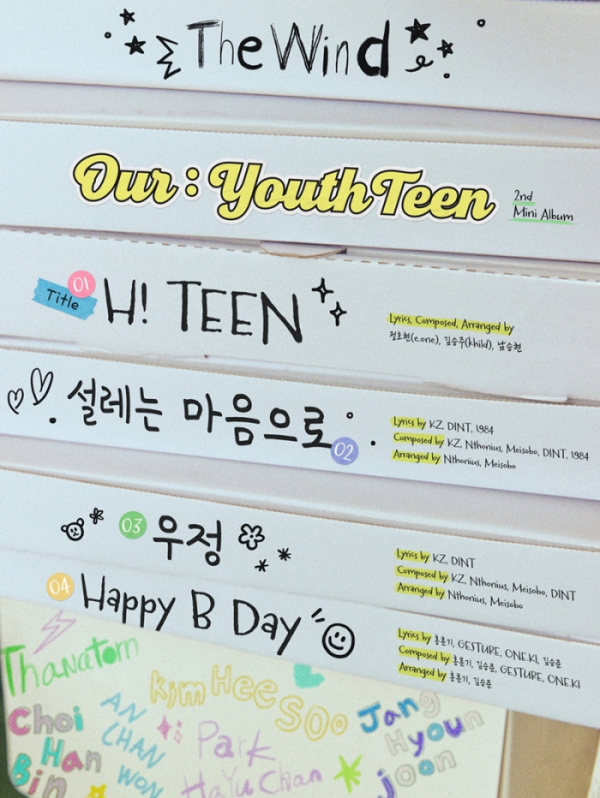 The Wind
Our : YouthTeen
2nd
Mini Album
01
Title
H! TEEN
Lyrics, Composed, Arranged by
정호현(e.one), 김승주(khild), 남승현
설레는 마음으로
02
Lyrics by KZ, DINT, 1984
Composed by KZ, Nthonius, Meisobo, DINT, 1984
Arranged by Nthonius, Meisobo
03
우정
Lyrics by KZ, DINT
Composed by KZ, Nthonius, Meisobo, DINT
Arranged by Nthonius, Meisobo
04
Happy B Day
Lyrics by 홍훈기, GESTURE, ONE.KI, 김승준
Composed by 홍훈기, 김승준, GESTURE, ONE.KI
Arranged by 홍훈기, 김승준
Thanatorn
Kim Hee
Soo
Jang
Hyoun
joon
AN
CHAN
WON
Choi
Han
Bin
Park
HaYuChan